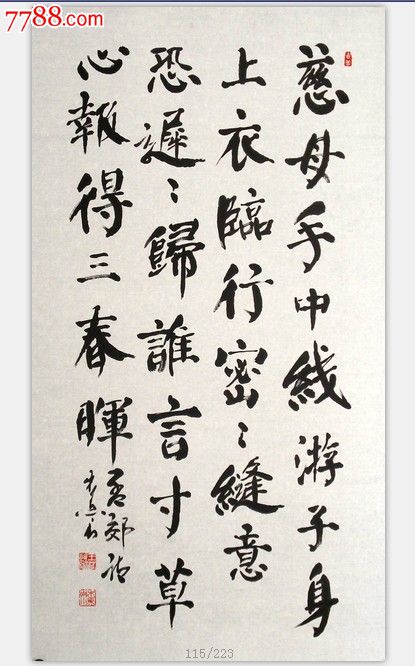 7788.com
慈母手中线游子身
上衣臨行密〻縫意
恐遲〻歸誰言寸草
心報得三春暉
孟郊
115/223